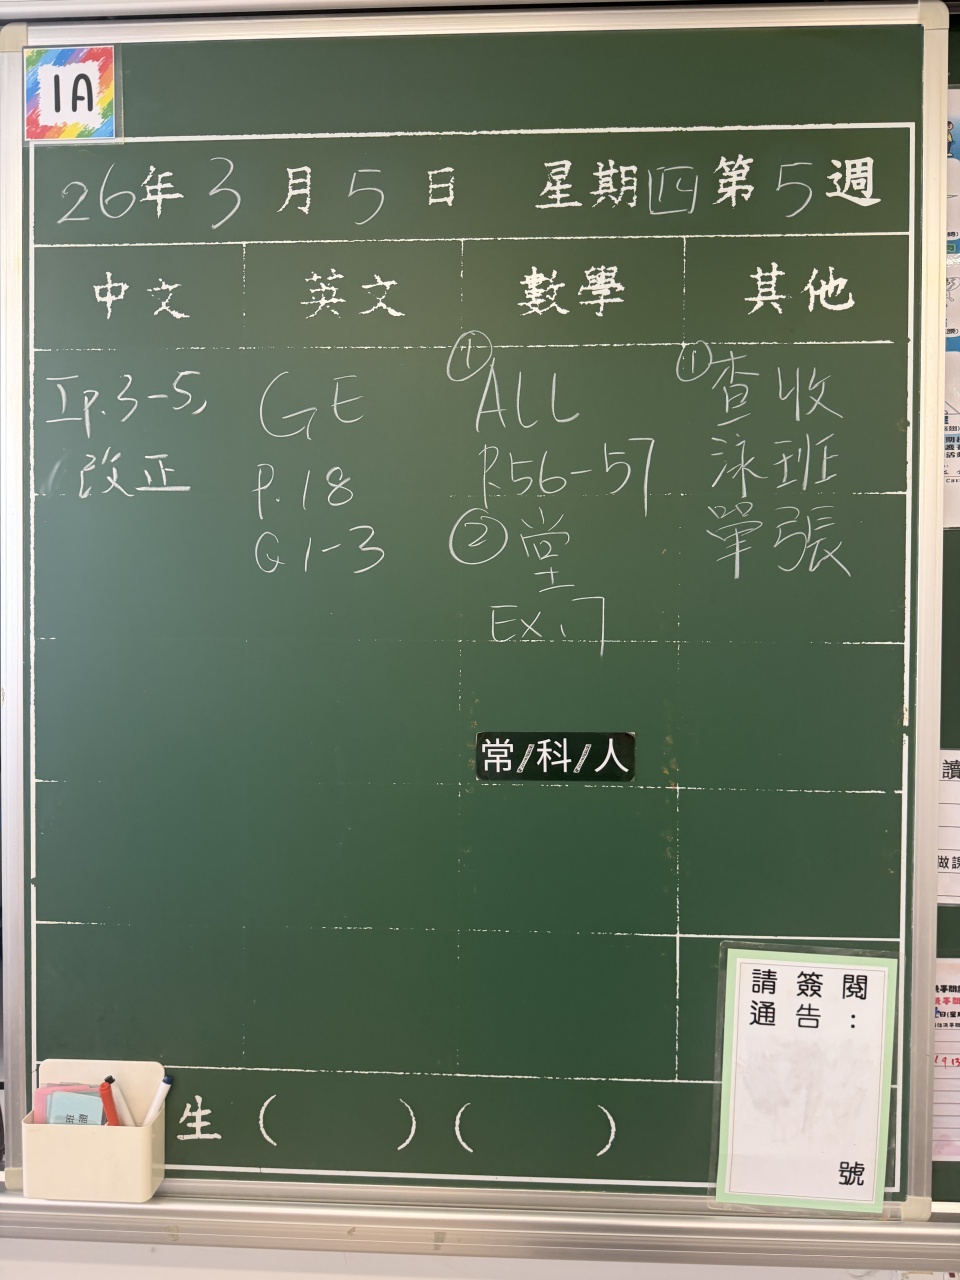 1A
26年3月5日 星期四第5週
中文 英文 數學 其他
工p.3-5,
改正
GE
P.18
Q1-3
① ALL
P.56-57
② 堂
EX.17
① 查收
泳班
單張
常/科/人
請簽閱
通告:
號
生 ( ) ( )
讀
做課